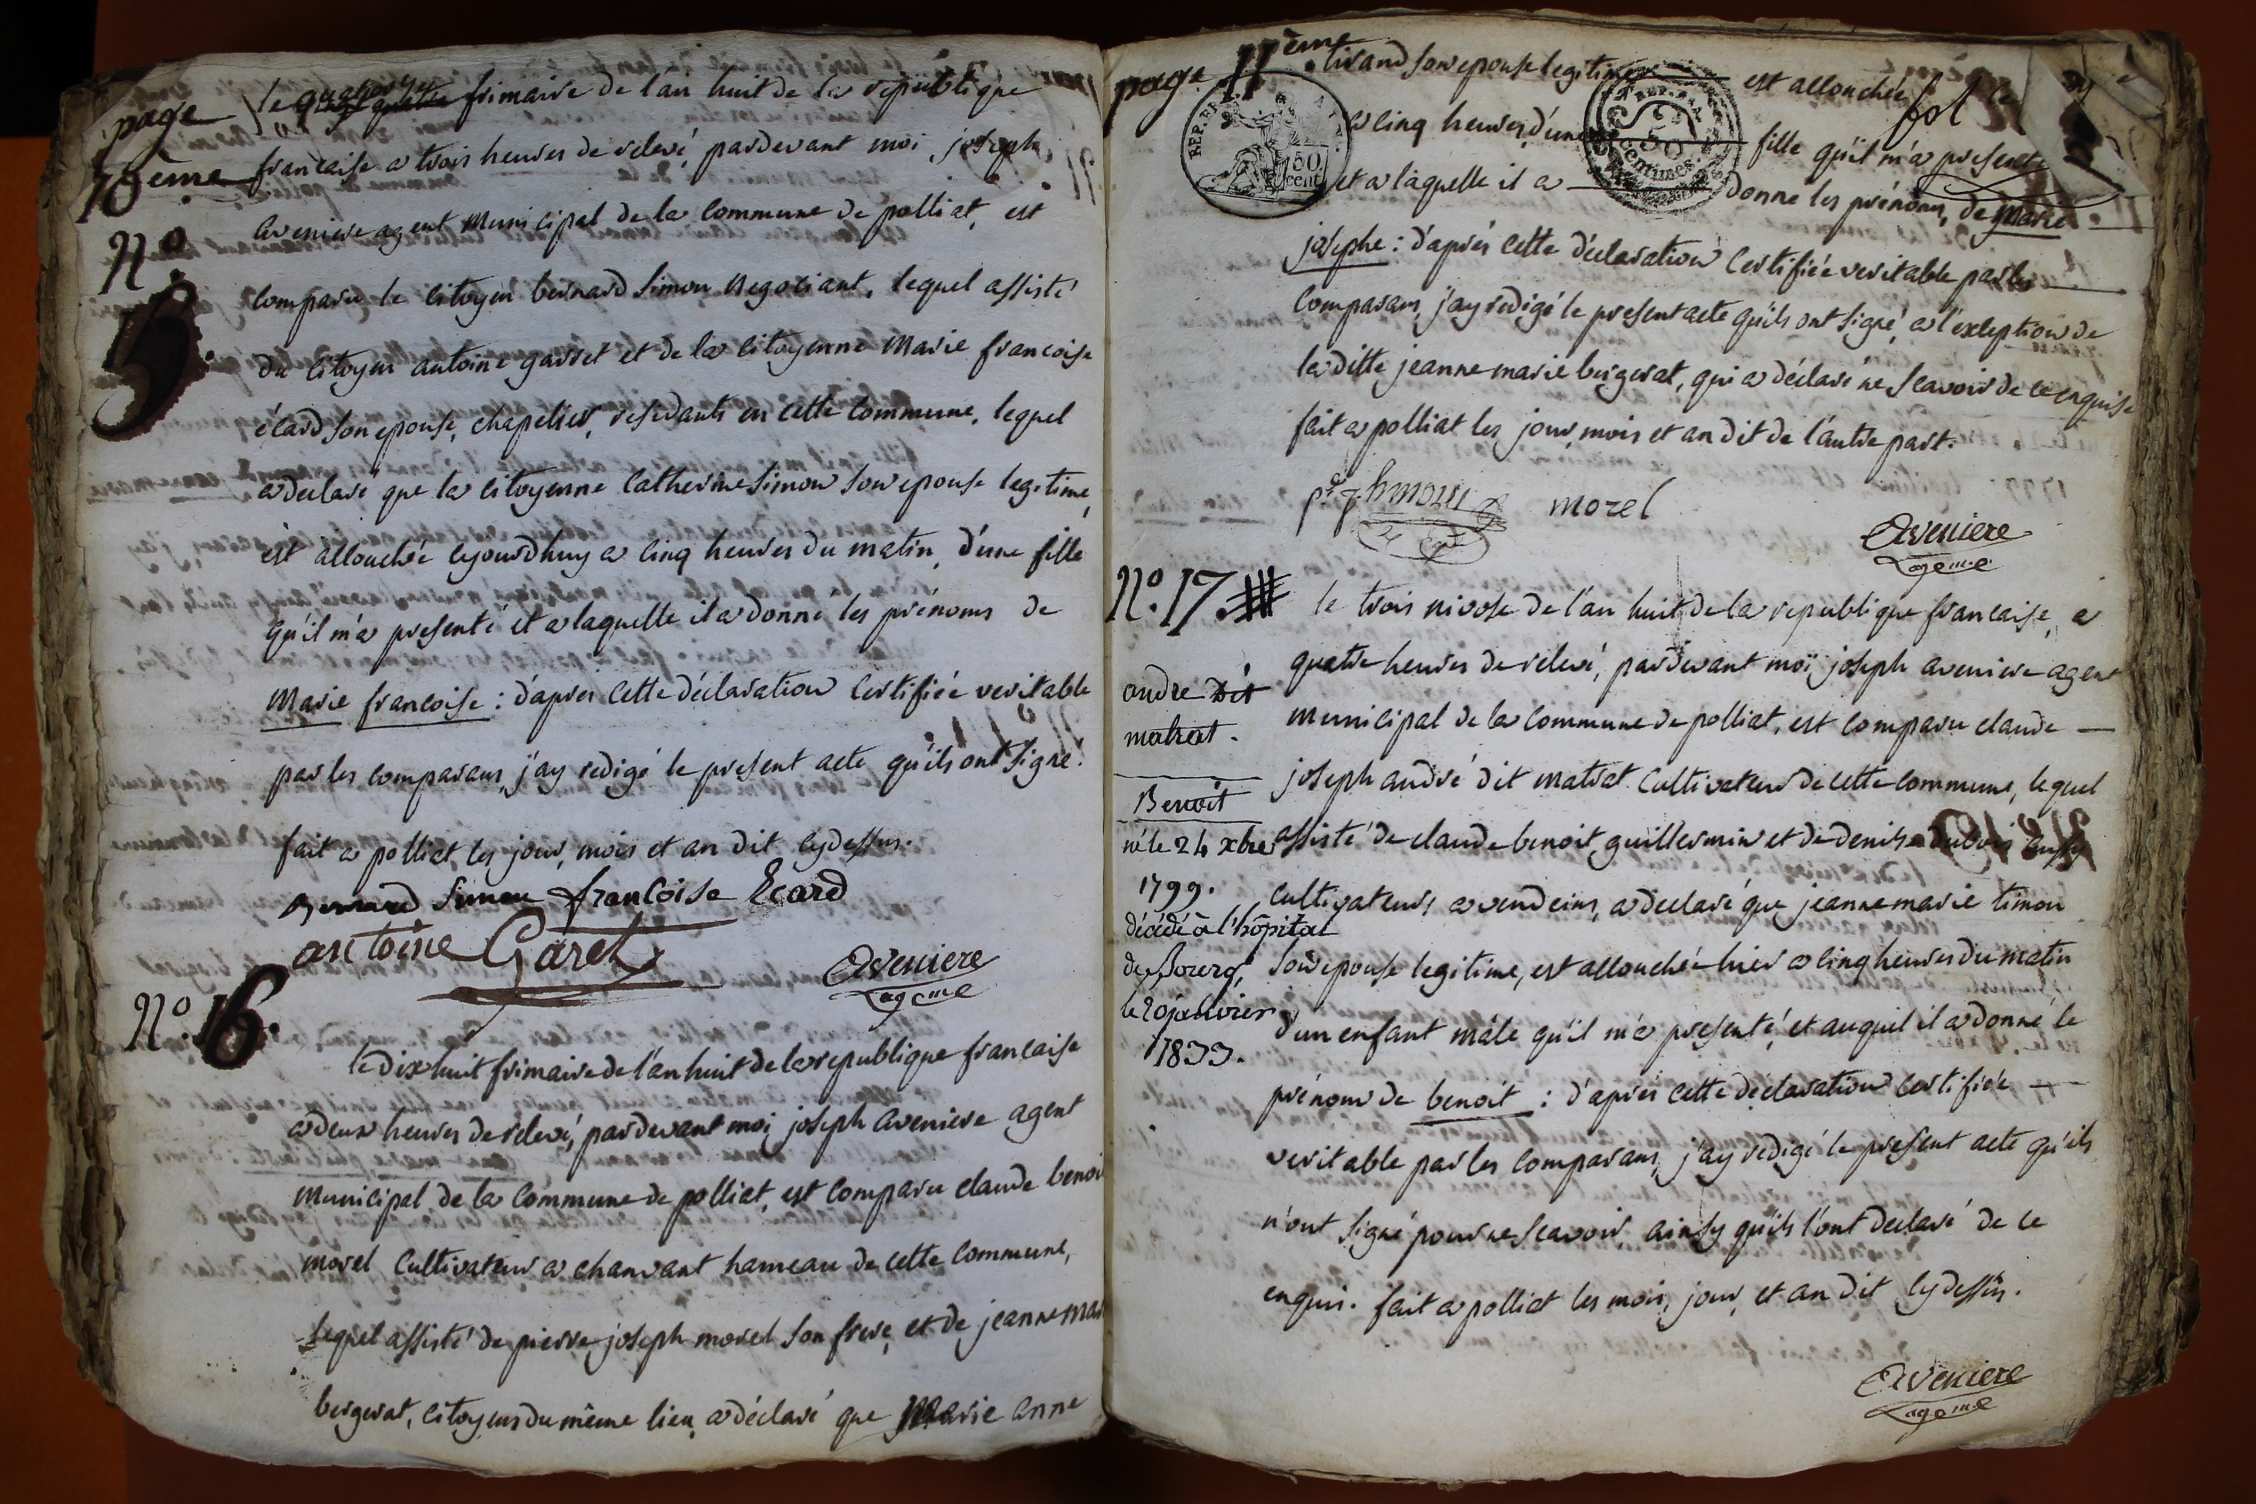 page
10ème
le quatorze frimaire de l'an huit de la republique
francaise a trois heures de relevé, pardevant moi, joseph
aveniere agent municipal de la commune de polliat, est
N.º
comparu le citoyen bernard simon negotiant, lequel assisté
du citoyen antoine garret et de la citoyenne marie francoise
écard son epouse, chapelier, residants en cette commune, lequel
a declaré que la citoyenne catherine simon son epouse legitime,
est allouchée cejourdhuy a cinq heures du matin, d'une fille
qu'il m'a presenté et a laquelle il a donné les prénoms de
marie francoise : d'après cette déclaration certifiée veritable
par les comparans, j'ay redigé le present acte qu'ils ont signé.
fait a polliat les jour, mois et an dit cydessus.
Bernard Simon francoise Ecard
antoine Garet
Aveniere
agᵉᵐᵉ
N.º 16.
le dix huit frimaire de l'an huit de la republique francaise
a deux heures de relevé, pardevant moi joseph aveniere agent
municipal de la commune de polliat, est comparu claude benoi
morel cultivateur a chanvant hameau de cette commune,
lequel assisté de pierre joseph morel son frere, et de jeanne mar
bergerat, citoyens du même lieu, a déclaré que marie anne
page 11ème
tirand son epouse legitime est allouchée
fol
REP. FRA.
50 cent.
50 centimes.
a cinq heures, d'une fille qu'il m'a presenté
et a laquelle il a donné les prénoms, de marie
josephe : d'après cette déclaration certifiée veritable par les
comparans, j'ay redigé le present acte qu'ils ont signé, a l'exception de
la ditte jeanne marie bergerat, qui a déclaré ne scavoir de ce enquise
fait a polliat les jour, mois et an dit de l'autre part.
morel
Aveniere
agᵉᵐᵉ
N.º 17.
le trois nivose de l'an huit de la republique francaise, a
quatre heures de relevé, pardevant moi joseph aveniere agent
andre dit
matrat.
municipal de la commune de polliat, est comparu claude
joseph andré dit matrat cultivateur de cette commune, lequel
Benoît
né le 24 xbre
1799.
décédé à l'hôpital
de Bourg,
le 20 janvier
1833.
assisté de claude benoit guillermin et de denise dubois aussy
cultivateurs a vendeins, a declaré que jeanne marie timon
son epouse legitime, est allouchée hier a cinq heures du matin
d'un enfant mâle qu'il m'a presenté, et auquel il a donné le
prénom de benoit : d'après cette déclaration certifiée
veritable par les comparans, j'ay redigé le present acte qu'ils
n'ont signé pour ne scavoir, ainsy qu'ils l'ont declaré de ce
enquis. fait a polliat les mois, jour, et an dit cydessus.
Aveniere
agᵉᵐᵉ